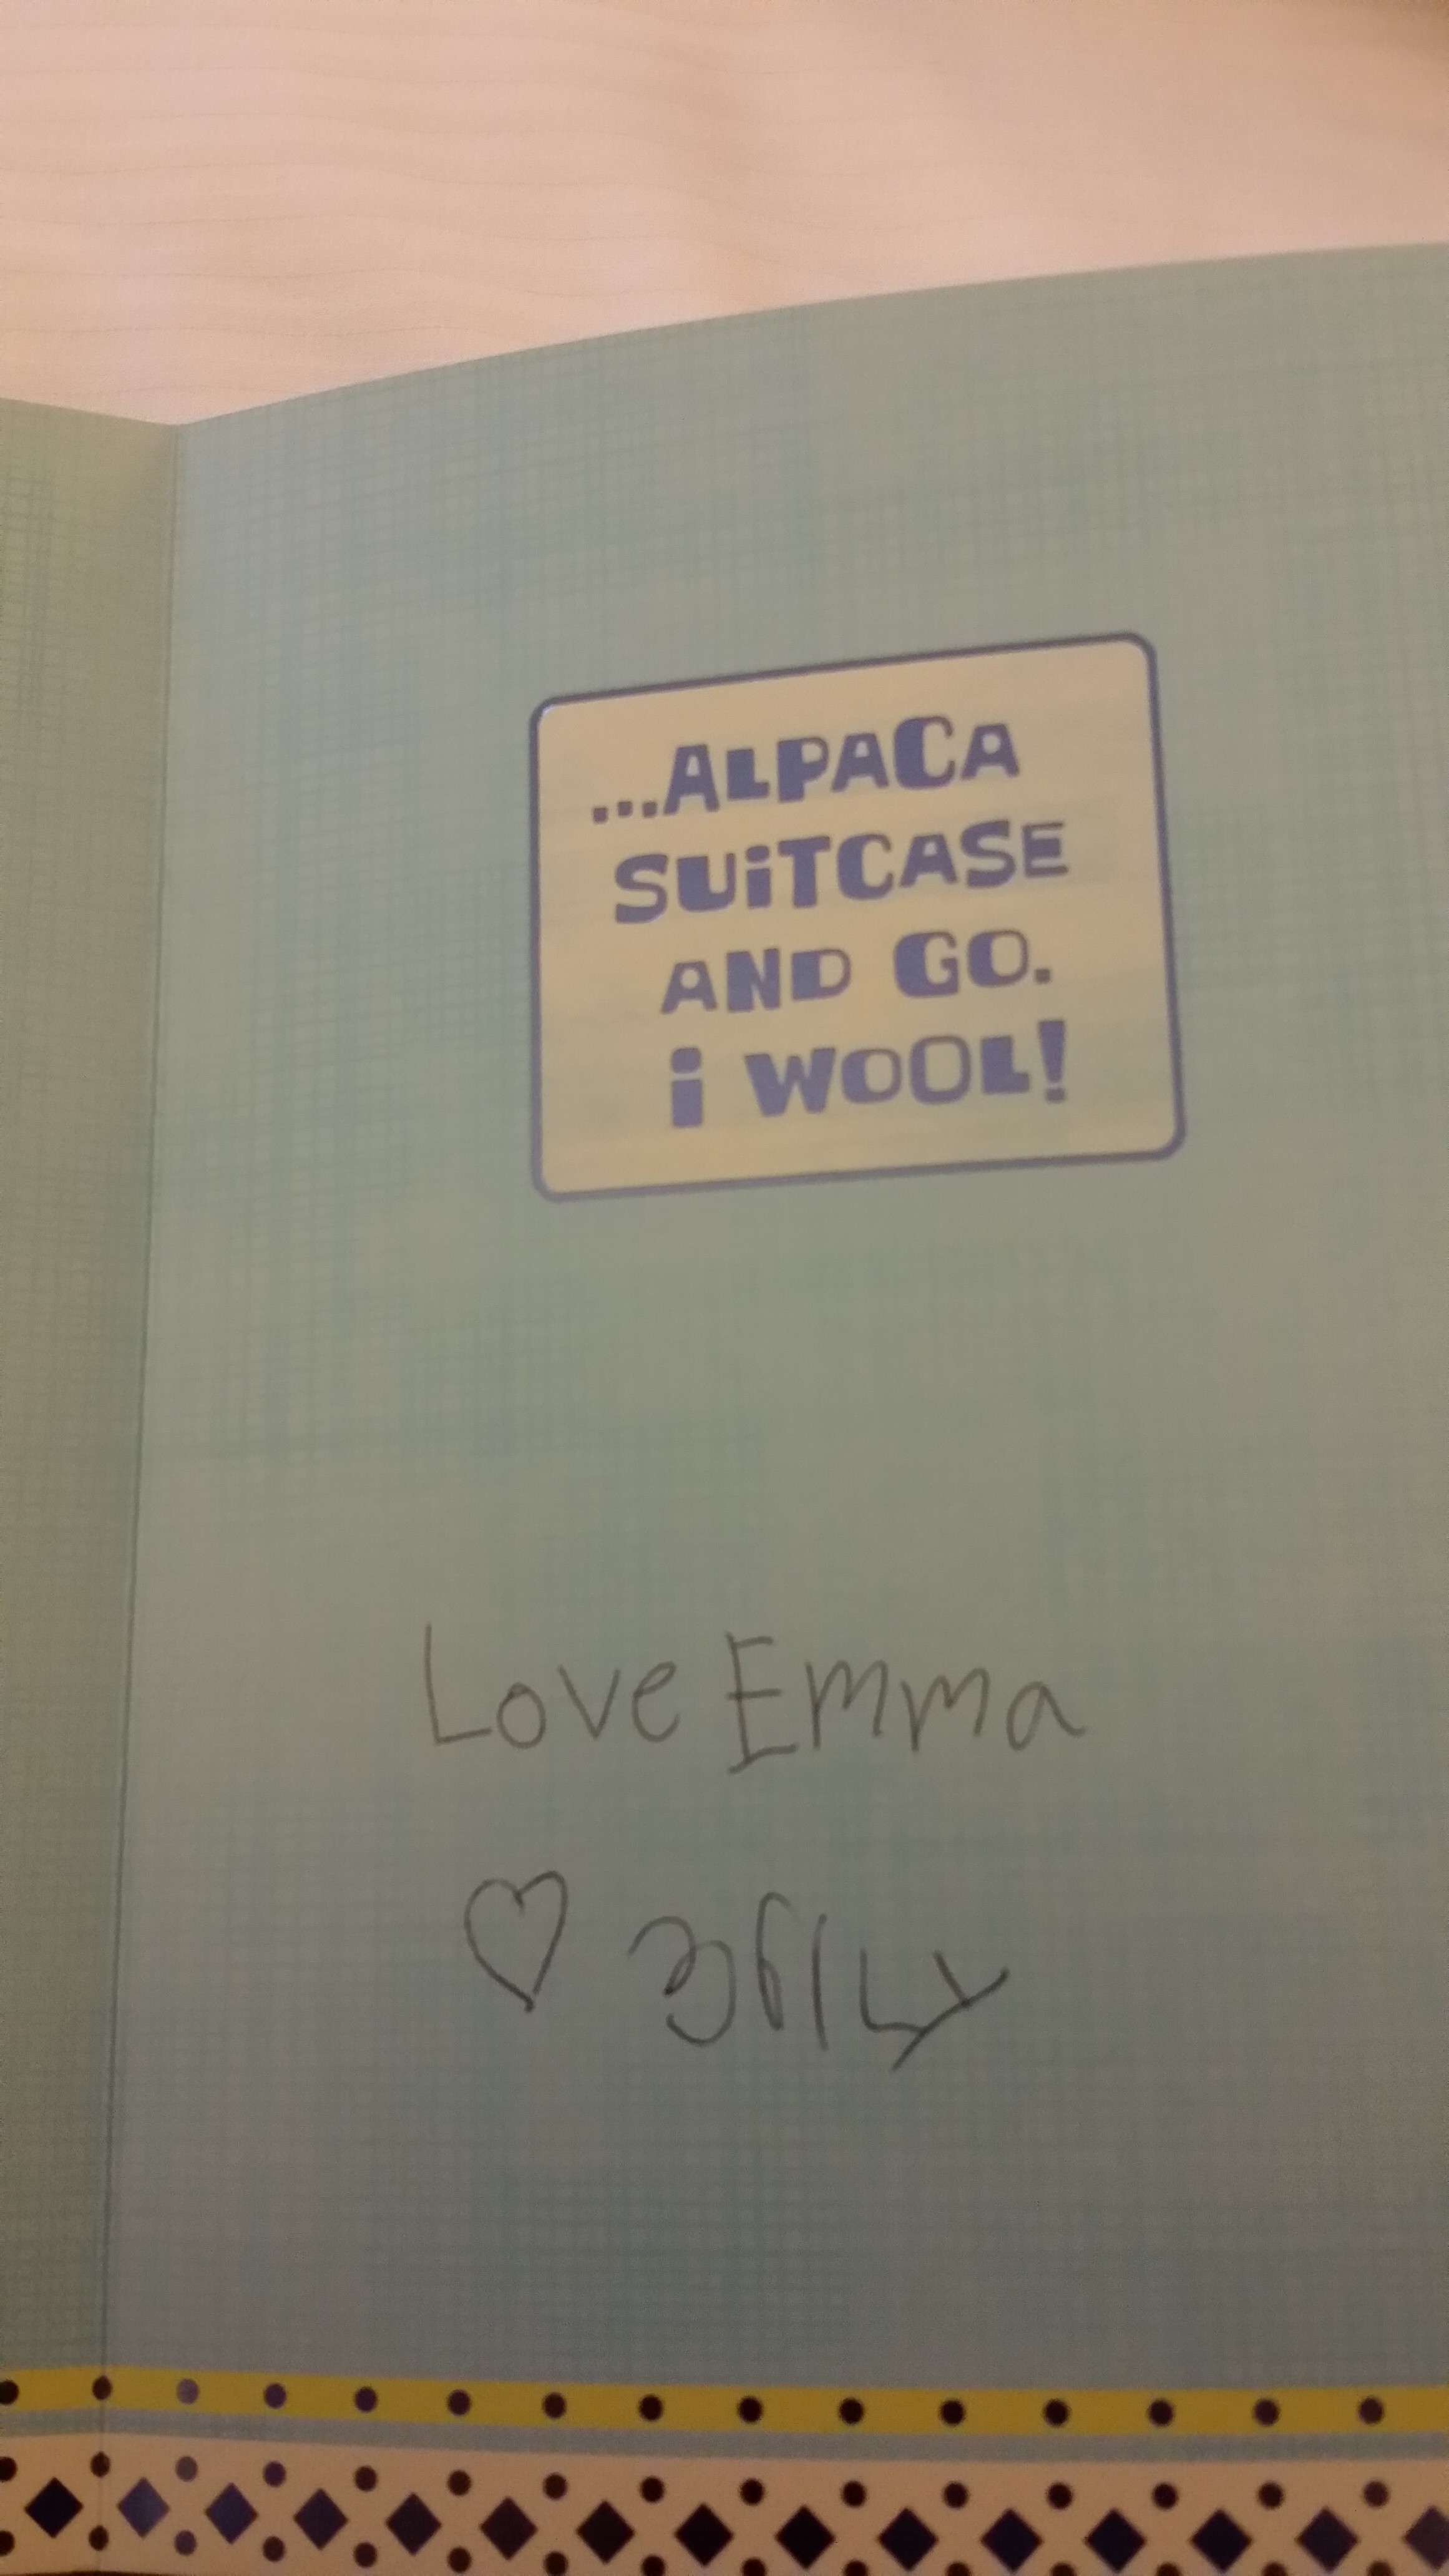 ...ALPACA
SUiTCASE
AND GO.
i WOOL!
Love Emma